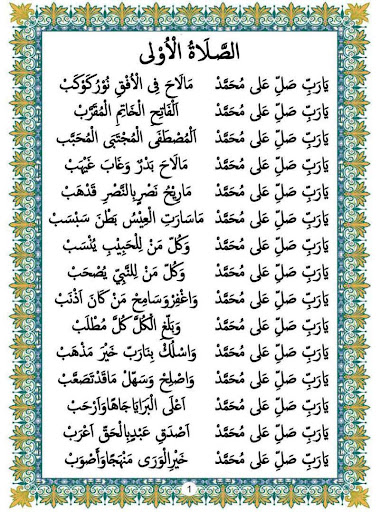 الصَّلَاةُ الْأُوْلَى
يَارَبِّ صَلِّ عَلَى مُحَمَّدْ مَالَاحَ فِى الْأُفُقِ نُوْرُ كَوْكَبْ
يَارَبِّ صَلِّ عَلَى مُحَمَّدْ اَلْفَاتِحِ الْخَاتِمِ الْمُقَرَّبْ
يَارَبِّ صَلِّ عَلَى مُحَمَّدْ اَلْمُصْطَفَى الْمُجْتَبَى الْمُحَبَّبْ
يَارَبِّ صَلِّ عَلَى مُحَمَّدْ مَالَاحَ بَدْرٌ وَغَابَ غَيْهَبْ
يَارَبِّ صَلِّ عَلَى مُحَمَّدْ مَارِيْحُ نَصْرٍ بِالنَّصْرِ قَدْهَبْ
يَارَبِّ صَلِّ عَلَى مُحَمَّدْ مَاسَارَتِ الْعِيْسُ بَطْنَ سَبْسَبْ
يَارَبِّ صَلِّ عَلَى مُحَمَّدْ وَكُلِّ مَنْ لِلْحَبِيْبِ يُنْسَبْ
يَارَبِّ صَلِّ عَلَى مُحَمَّدْ وَكُلِّ مَنْ لِلنَّبِيِّ يُصْحَبْ
يَارَبِّ صَلِّ عَلَى مُحَمَّدْ وَاغْفِرْ وَسَامِحْ مَنْ كَانَ اَذْنَبْ
يَارَبِّ صَلِّ عَلَى مُحَمَّدْ وَبَلِّغِ الْكُلَّ كُلَّ مُطْلَبْ
يَارَبِّ صَلِّ عَلَى مُحَمَّدْ وَاسْلُكْ بِنَارَبِّ خَيْرَ مَذْهَبْ
يَارَبِّ صَلِّ عَلَى مُحَمَّدْ وَاصْلِحْ وَسَهِّلْ مَاقَدْتَصَعَّبْ
يَارَبِّ صَلِّ عَلَى مُحَمَّدْ اَعْلَى الْبَرَايَاجَاهًاوَاَرْحَبْ
يَارَبِّ صَلِّ عَلَى مُحَمَّدْ اَصْدَقِ عَبْدٍبِالْحَقِّ اَعْرَبْ
يَارَبِّ صَلِّ عَلَى مُحَمَّدْ خَيْرِالْوَرَى مَنْهَجًاوَاَصْوَبْ
1